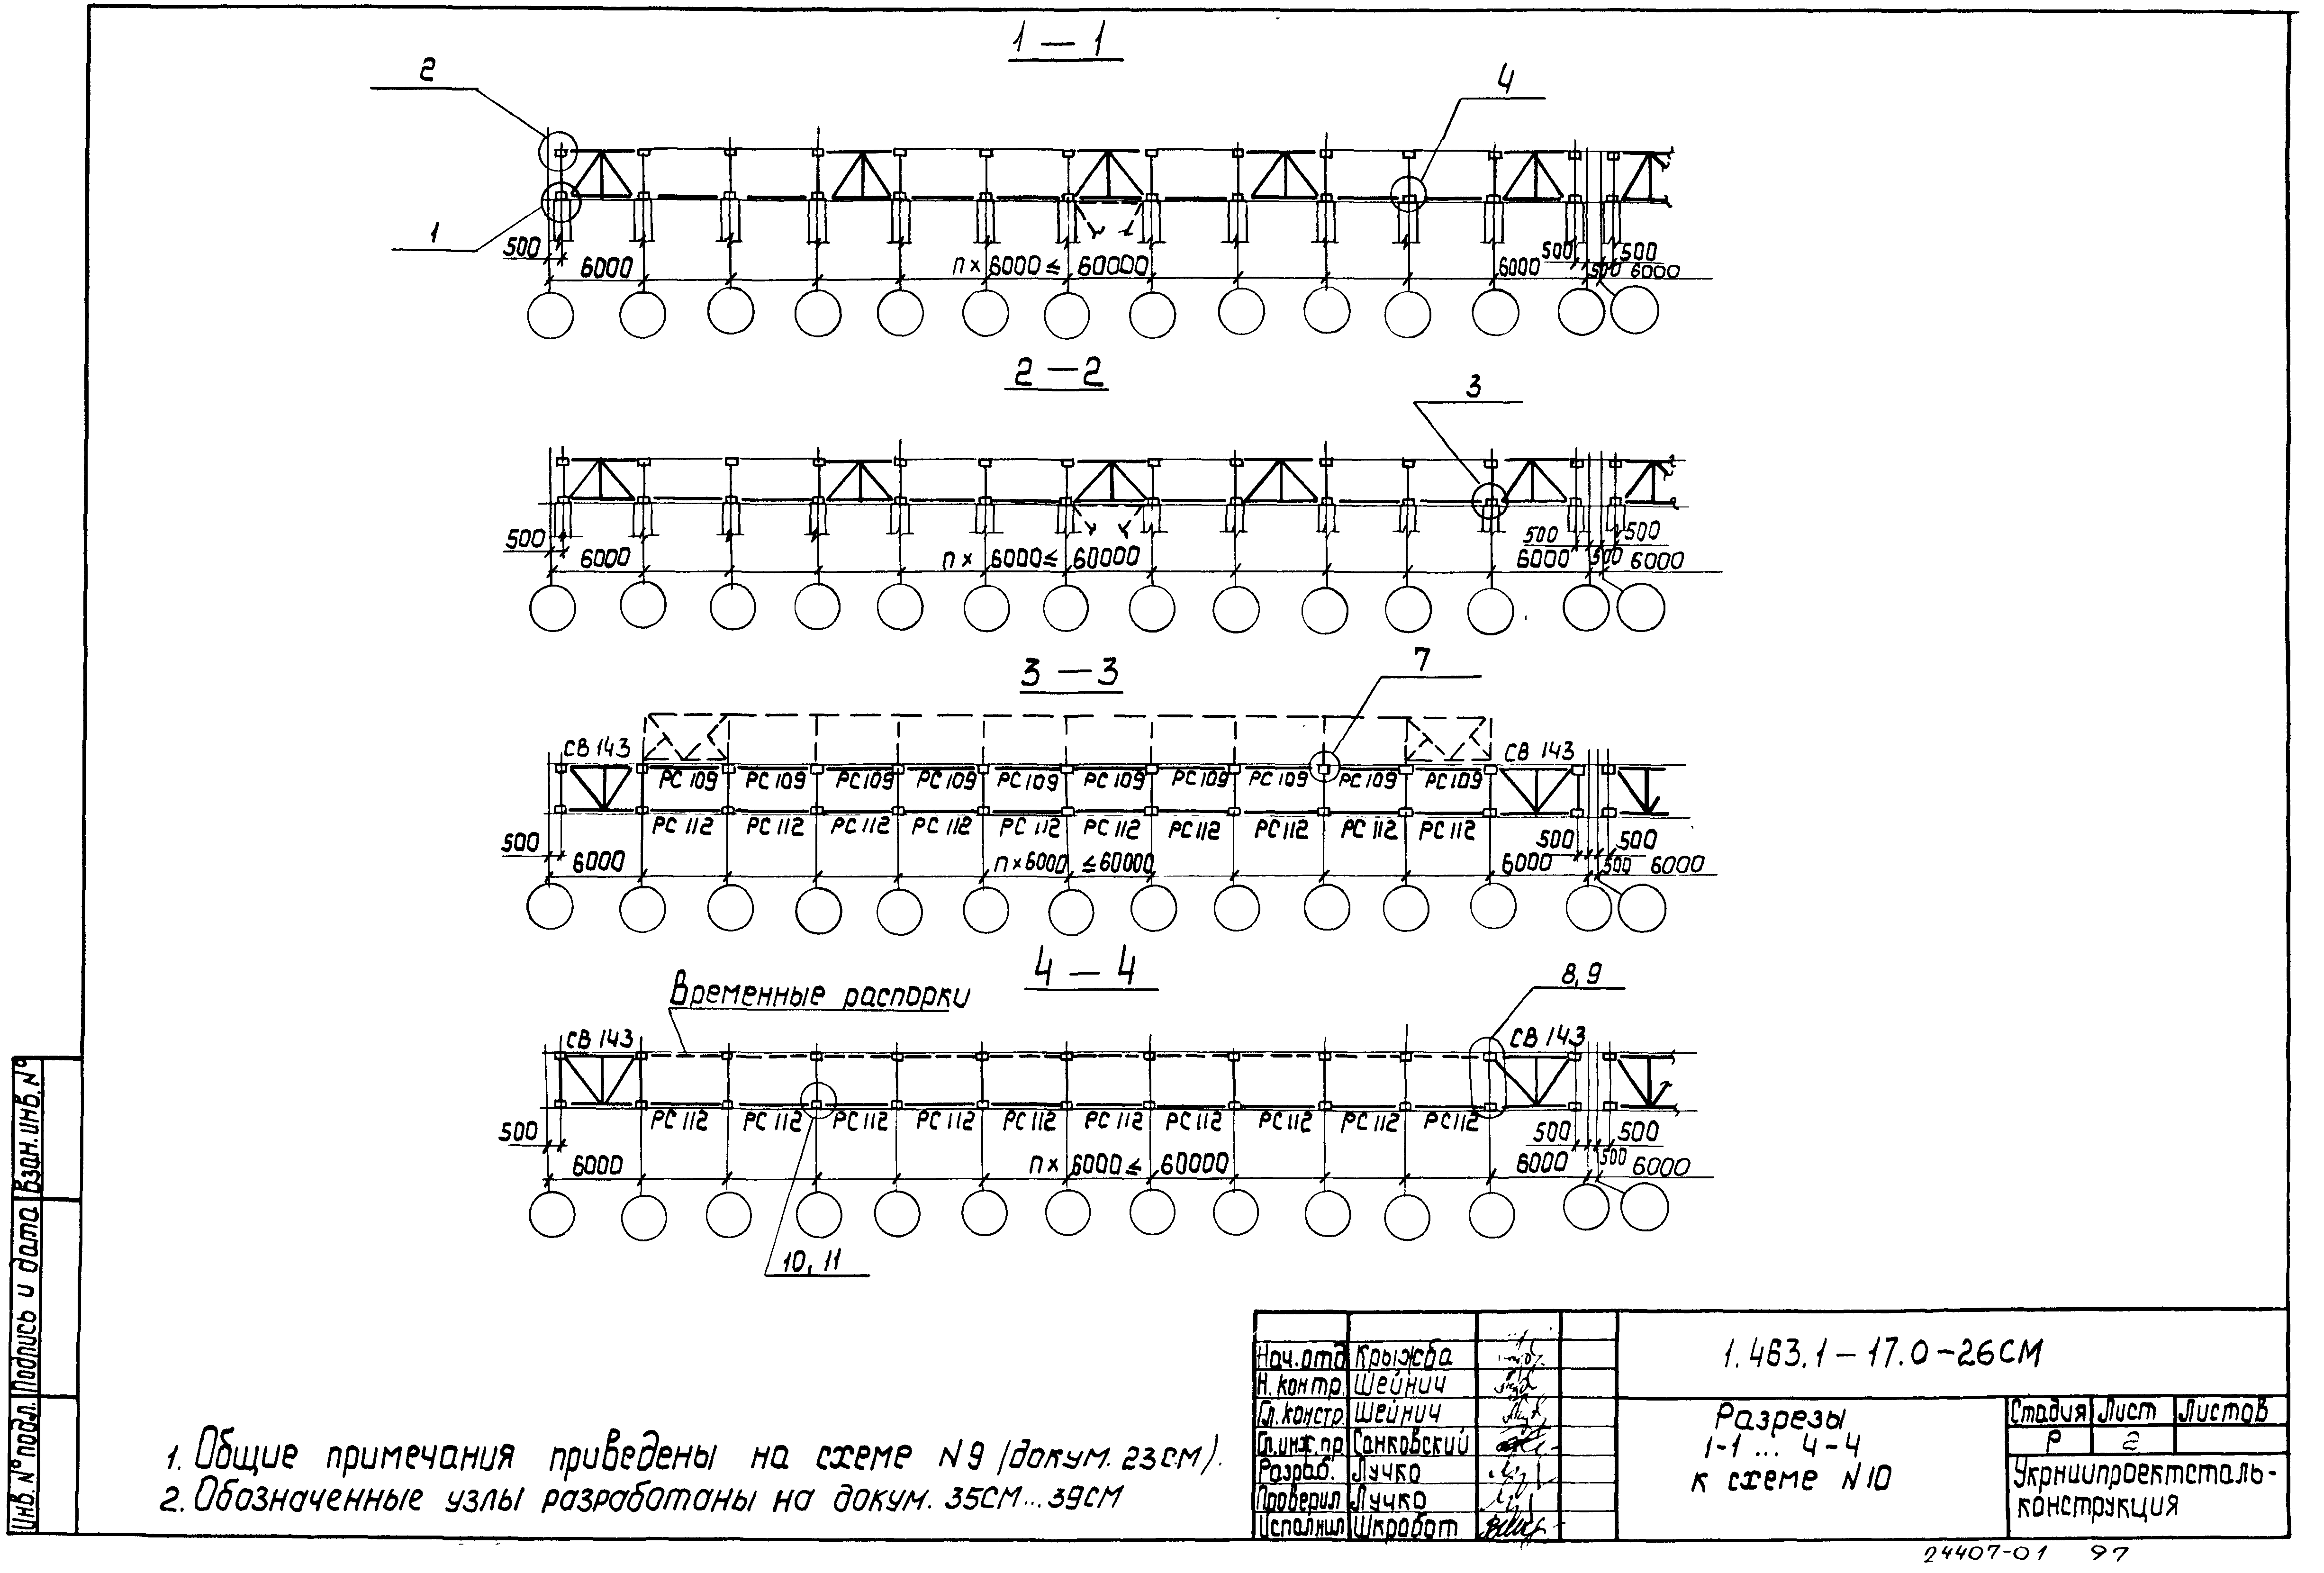 1 — 1
2
4
1
500
6000
п х 6000 ≤ 60000
6000
500
500
500
6000
2 — 2
3
500
6000
п х 6000 ≤ 60000
6000
500
500
500
6000
3 — 3
7
СВ 143
СВ 143
РС 109 РС 109 РС 109 РС 109 РС 109 РС 109 РС 109 РС 109 РС 109 РС 109
РС 112 РС 112 РС 112 РС 112 РС 112 РС 112 РС 112 РС 112 РС 112 РС 112
500
6000
п х 6000 ≤ 60000
6000
500
500
500
6000
4 — 4
Временные распорки
8,9
СВ 143
СВ 143
РС 112 РС 112 РС 112 РС 112 РС 112 РС 112 РС 112 РС 112 РС 112 РС 112
500
6000
п х 6000 ≤ 60000
6000
500
500
500
6000
10, 11
1. Общие примечания приведены на схеме N 9 (докум. 23СМ).
2. Обозначенные узлы разработаны на докум. 35СМ...39СМ
Взан.инв.N°
Подпись и дата
Инв.N° подл.
Нач.отд Крыжба
Н.контр. Шейнич
Гл.констр. Шейнич
Гл.инж.пр Санковский
Разраб. Лучко
Проверил Лучко
Исполнил Шкробот
1.463.1 — 17.0 — 26СМ
Разрезы
1-1 ... 4-4
к схеме N 10
Стадия Лист Листов
Р 2
Укрниипроектсталь-
конструкция
24407-01 97